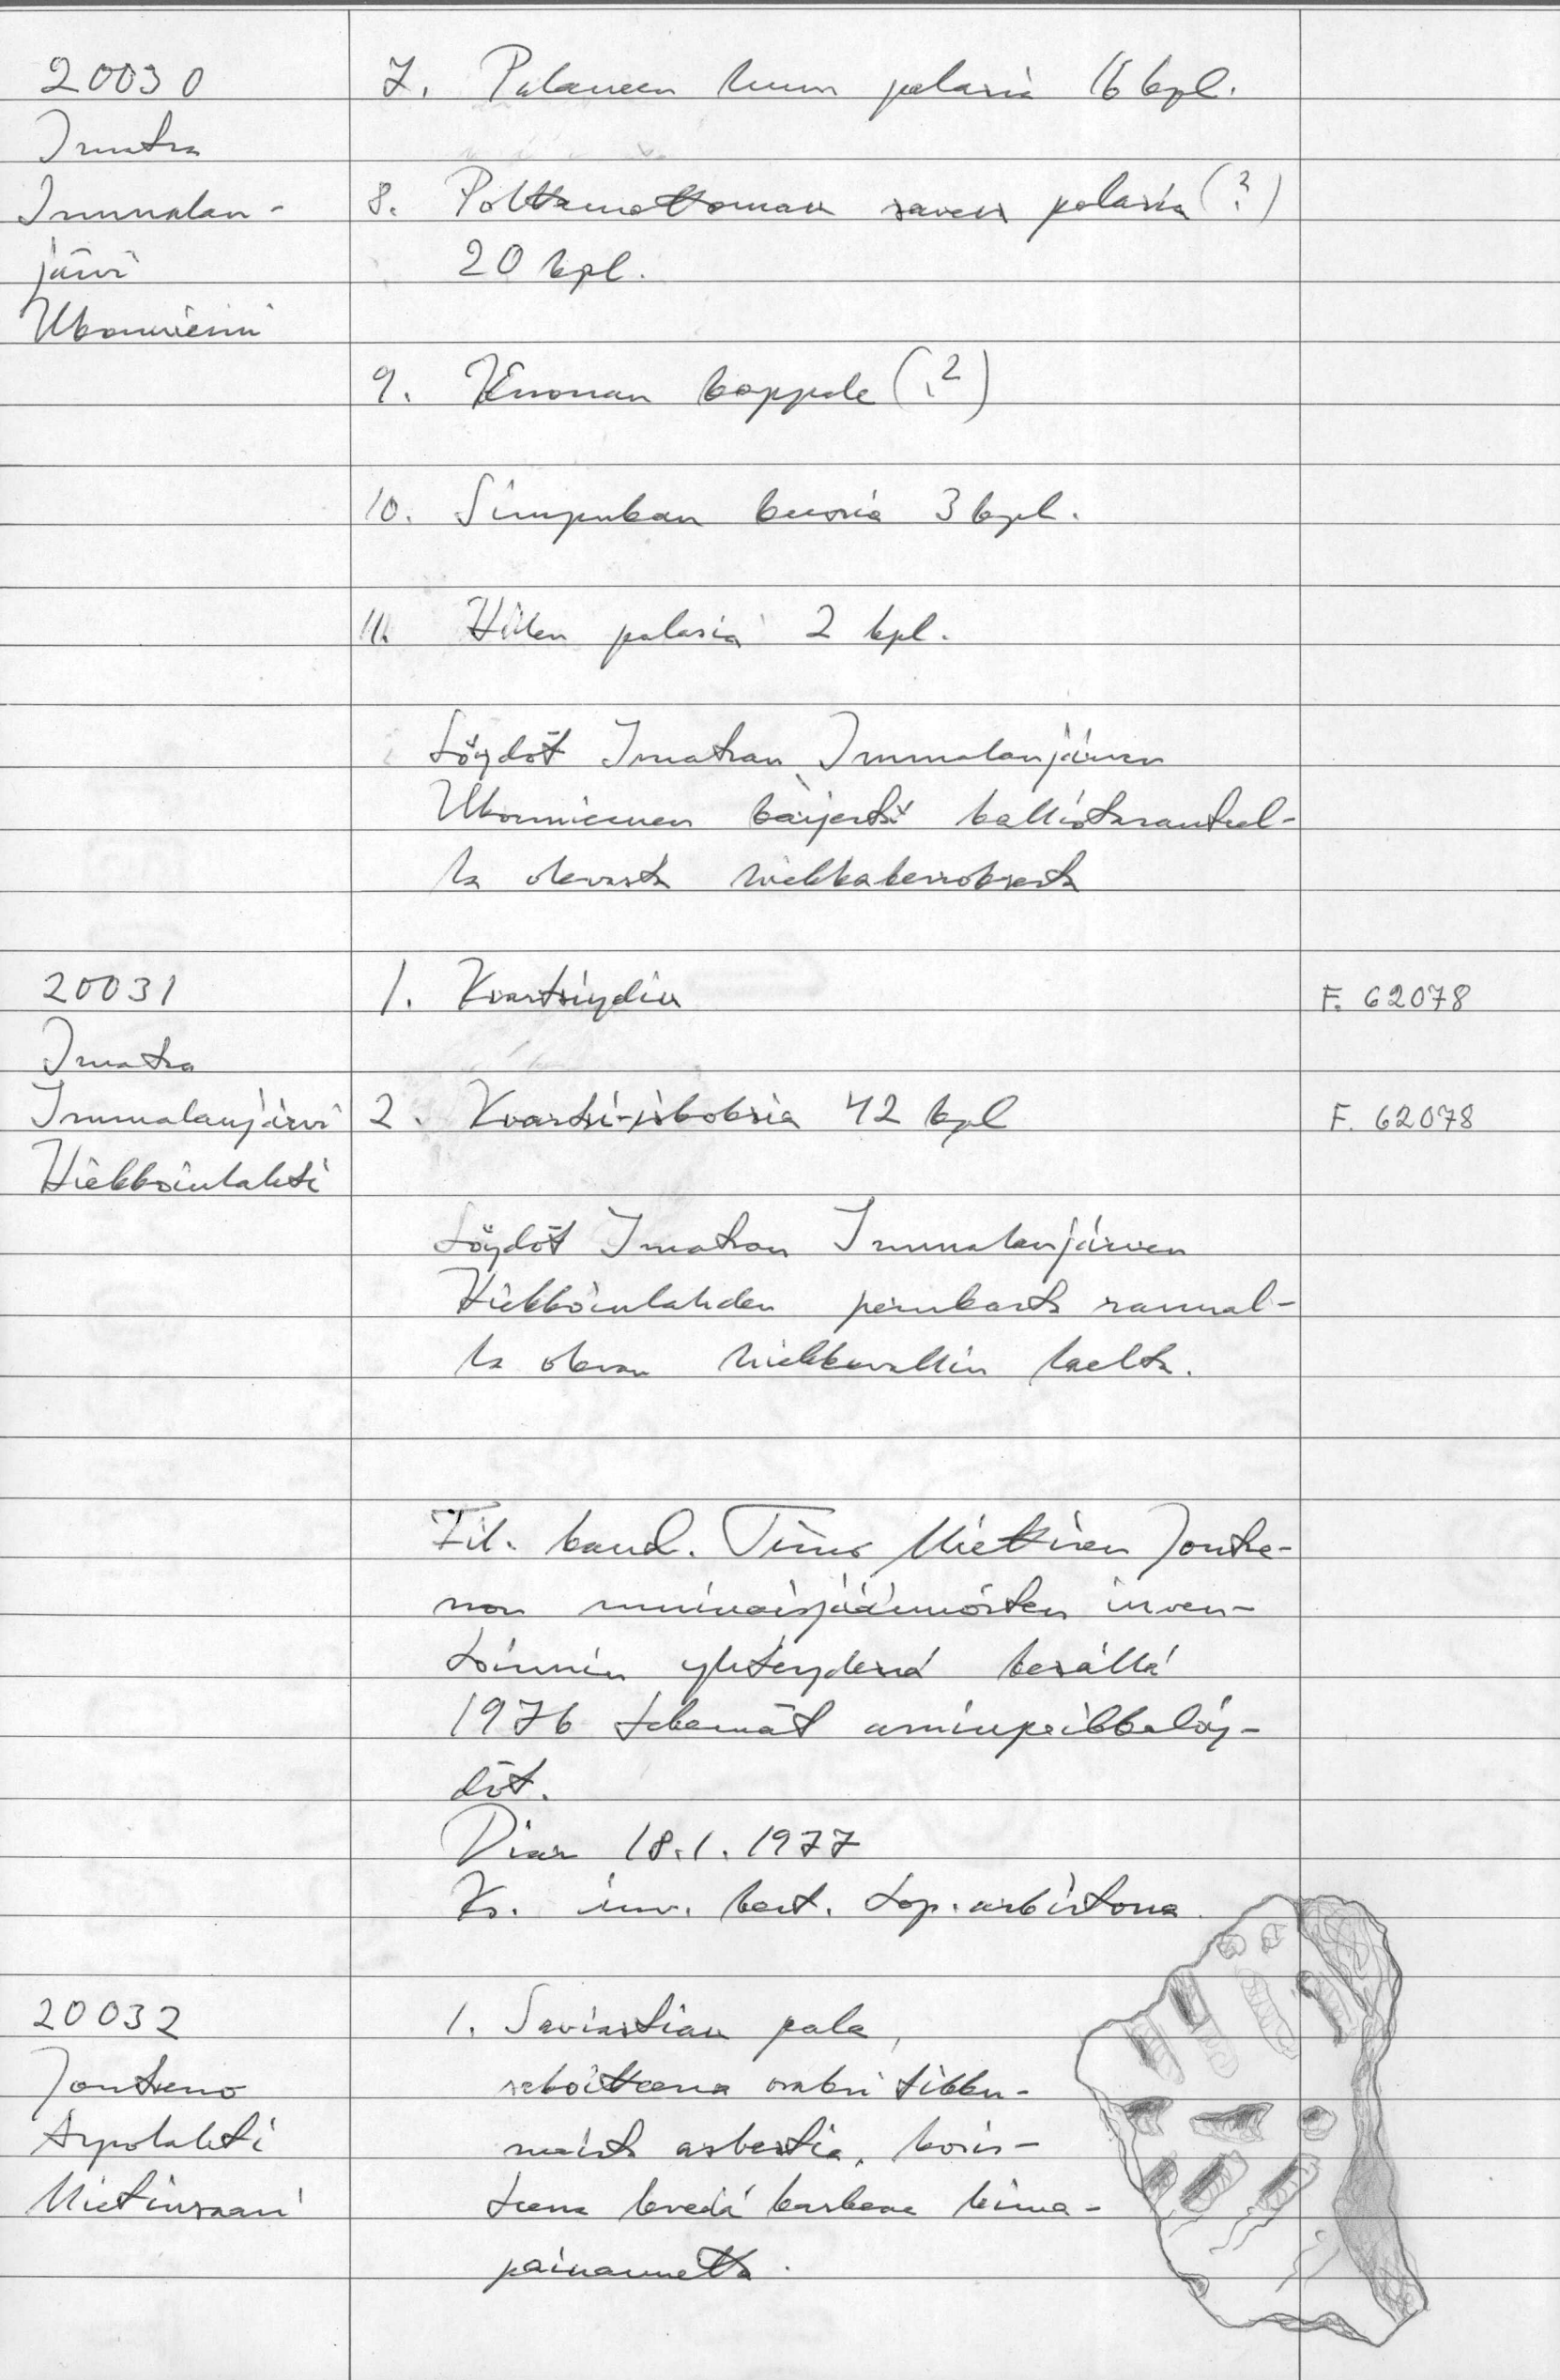 20030
Imatra
Immalan-
järvi
Ukonniemi
7. Palaneen luun palasia 16 kpl.
8. Polttamattoman saven palasia (?)
20 kpl.
9. Kuonan kappale (?)
10. Simpukan kuoria 3 kpl.
11. Hiilen palasia 2 kpl.
Löydöt Imatran Immalanjärven
Ukonniemen kärjestä kalliotasanteel-
la olevasta hiekkakerroksesta
20031
Imatra
Immalanjärvi
Hiekkoinlahti
1. Kvartsiydin
F. 62078
2. Kvartsi-iskoksia 42 kpl
F. 62078
Löydöt Imatran Immalanjärven
Hiekkoinlahden perukasta rannal-
la olevan hiekkavallin laelta.
Fil. kand. Timo Miettinen Joutse-
non muinaisjäännösten inven-
toinnin yhteydessä kesällä
1976 tekemät asuinpaikkalöy-
döt.
Diar 18.1.1977
Ks. inv. kert. top. arkistossa
20032
Joutseno
Arpolahti
Mietinsaari
1. Saviastian pala,
sekoitteena osaksi tikku-
maista asbestia, koris-
teena leveää karkeaa leima-
painannetta.